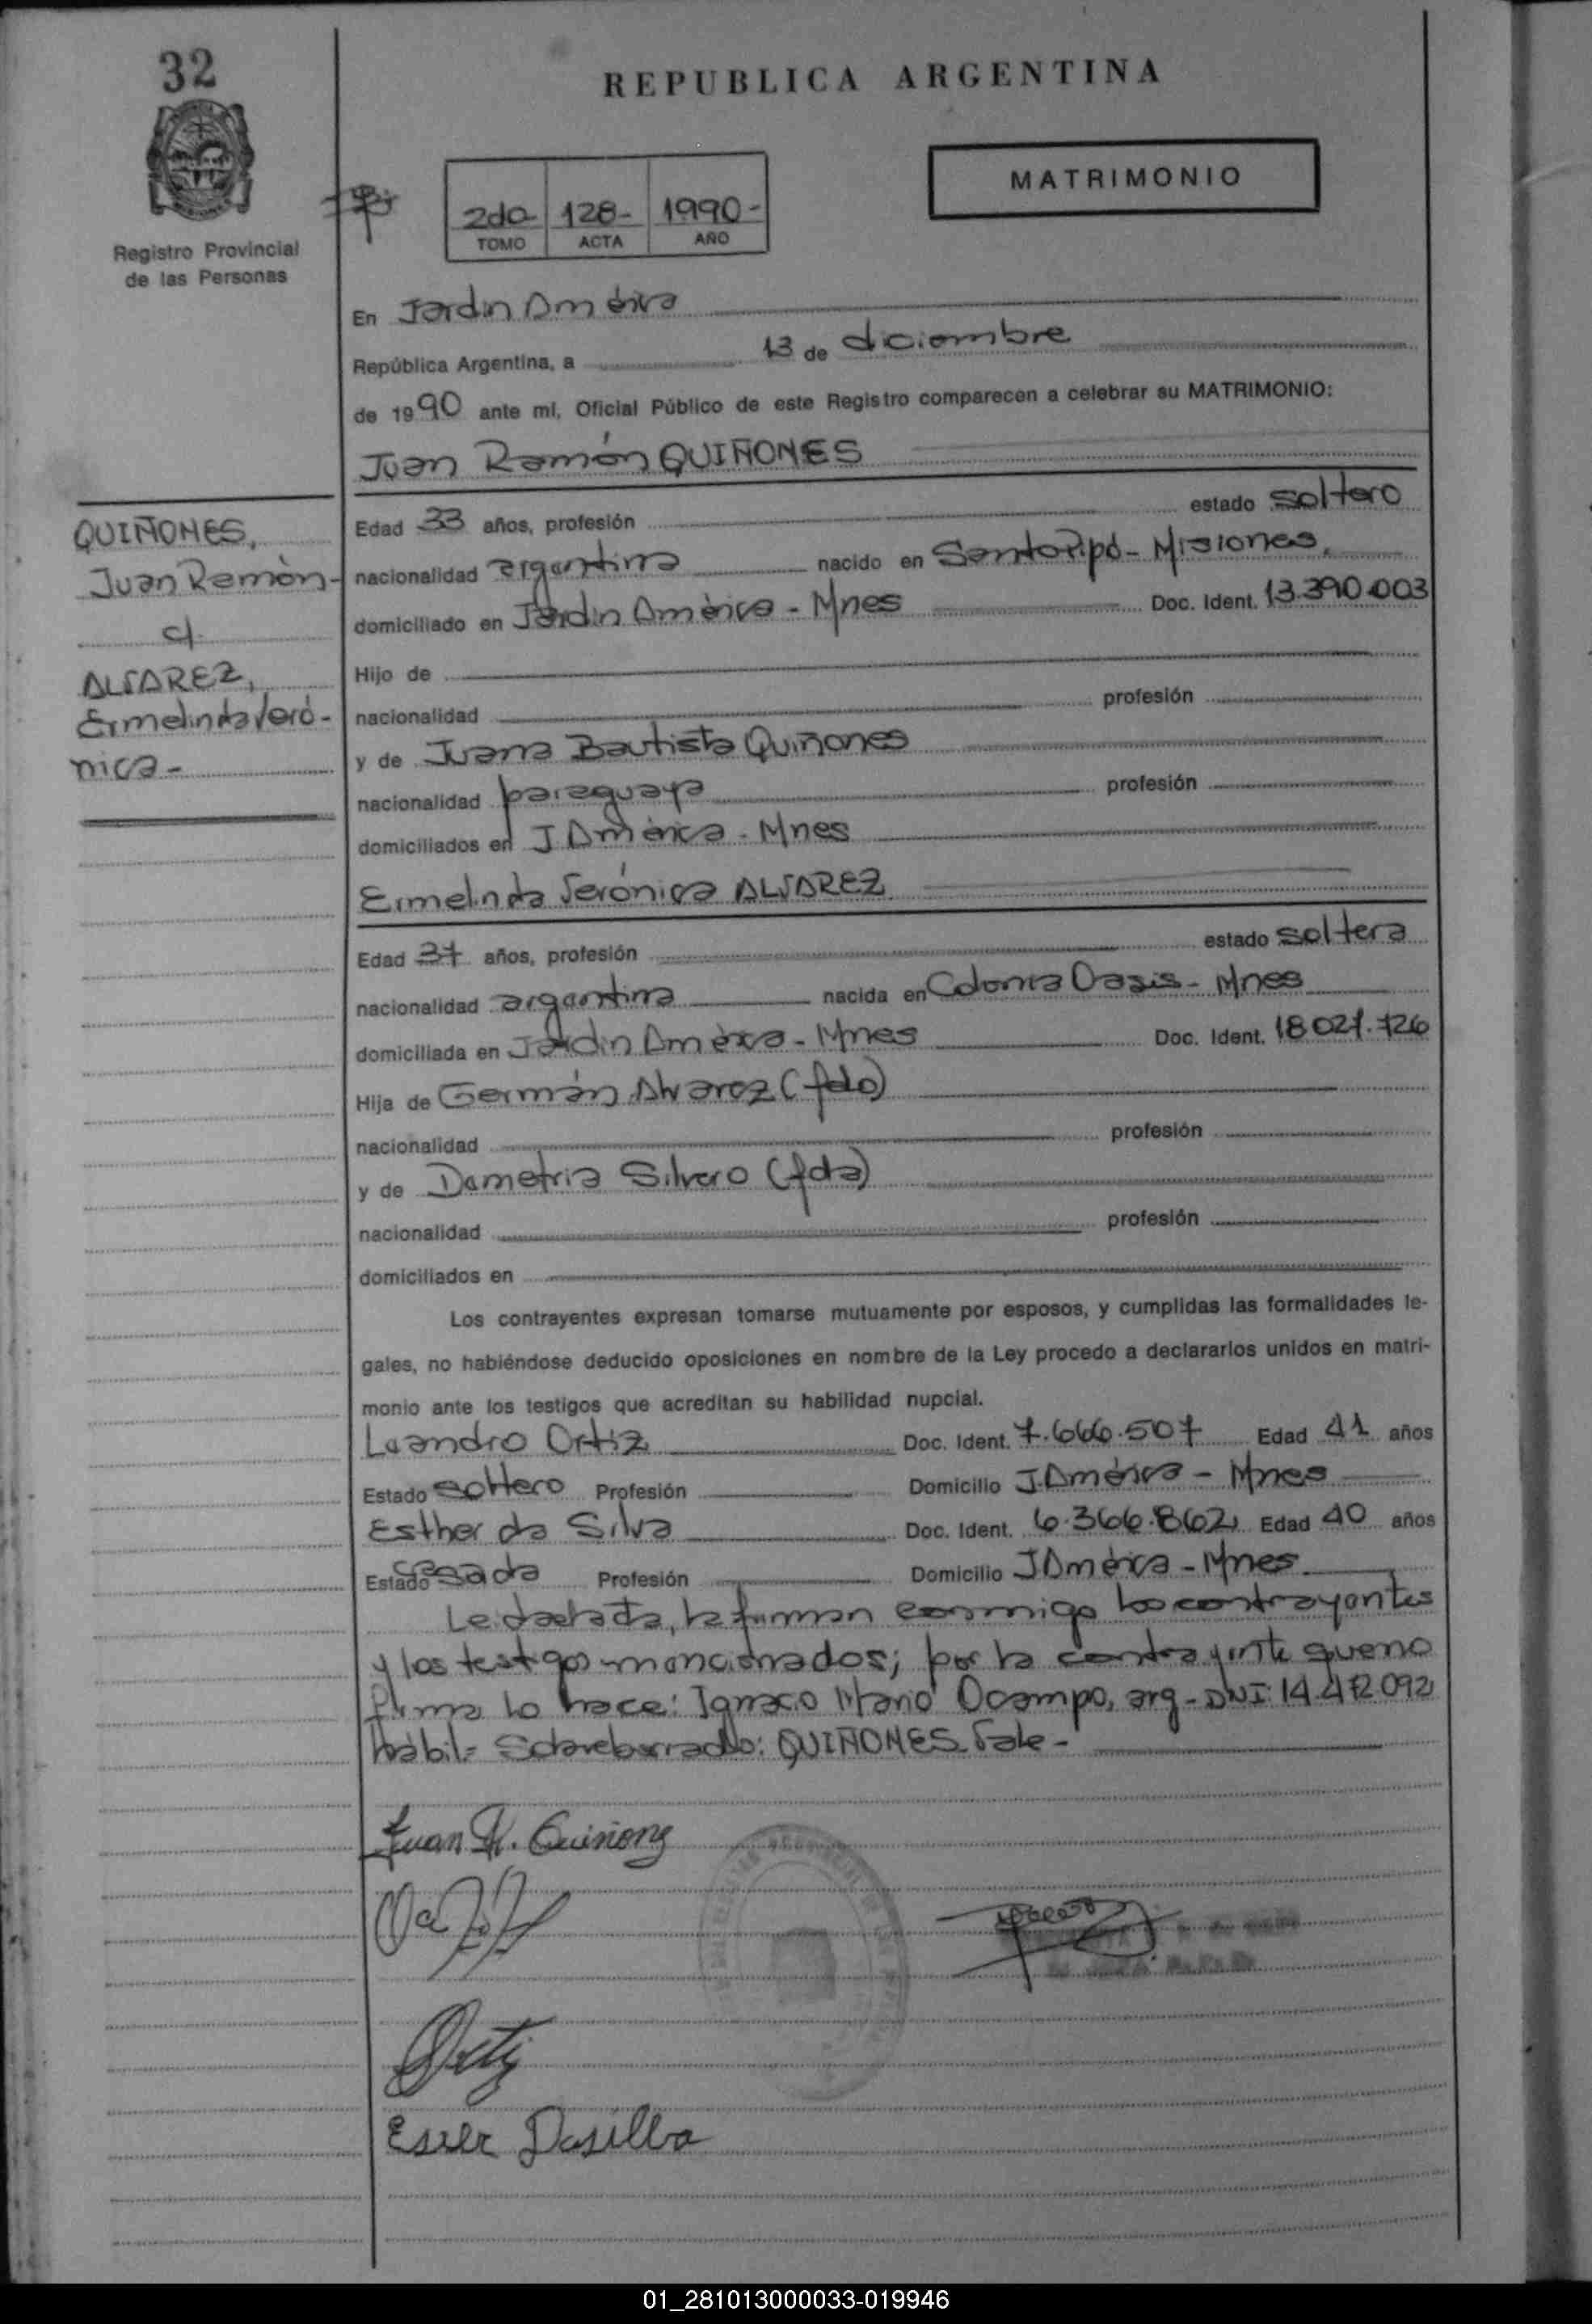 32
REPUBLICA ARGENTINA
MATRIMONIO
2do 128- 1990-
TOMO ACTA AÑO
Registro Provincial
de las Personas
En Jardín América
República Argentina, a 13 de diciembre
de 1990 ante mi, Oficial Público de este Registro comparecen a celebrar su MATRIMONIO:
Juan Ramón QUIÑONES
QUIÑONES,
Juan Ramón-
c/.
ALVAREZ,
Ermelinda Veró-
nica-
Edad 33 años, profesión estado soltero
nacionalidad argentina nacido en Santo Pipó- Misiones,
domiciliado en Jardín América - Mnes Doc. Ident. 13.390.003
Hijo de
nacionalidad profesión
y de Juana Bautista Quiñones
nacionalidad paraguaya profesión
domiciliados en J. América - Mnes
Ermelinda Verónica ALVAREZ
Edad 37 años, profesión estado soltera
nacionalidad argentina nacida en Colonia Oasis- Mnes
domiciliada en Jardín América - Mnes Doc. Ident. 18.027.726
Hija de Germán Alvarez (fdo)
nacionalidad profesión
y de Demetria Silvero (fda)
nacionalidad profesión
domiciliados en
Los contrayentes expresan tomarse mutuamente por esposos, y cumplidas las formalidades le-
gales, no habiéndose deducido oposiciones en nombre de la Ley procedo a declararlos unidos en matri-
monio ante los testigos que acreditan su habilidad nupcial.
Leandro Ortiz Doc. Ident. 7.666.507 Edad 41 años
Estado soltero Profesión Domicilio J. América - Mnes
Esther da Silva Doc. Ident. 6.366.862 Edad 40 años
Estado casada Profesión Domicilio J América - Mnes.
Leída el acta, la firman conmigo los contrayentes
y los testigos mencionados; por la contrayente que no
firma lo hace: Ignacio Mario Ocampo, arg- DNI: 14.472.092
hábil- Sobreborrado: QUIÑONES. Vale-
Juan R. Quiñonez
Ortiz
Ester Dasilba
01_281013000033-019946